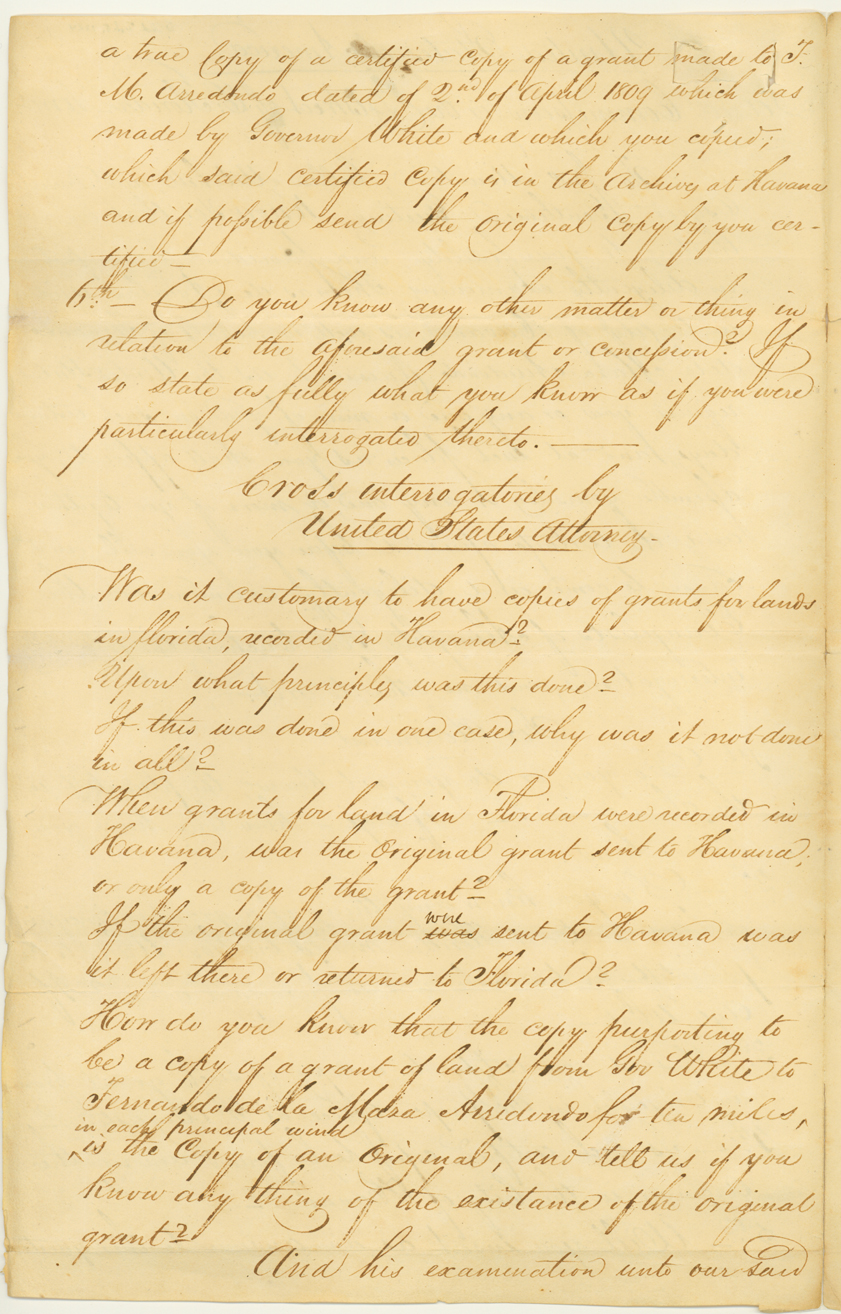 a true Copy of a certified copy of a grant [made to] F.
M. Arredondo dated of 2.nd of April 1809 which was
made by Governor White and which you copied;
which said certified Copy is in the Archives at Havana
and if possible send the Original Copy by you cer-
tified—
6.th — Do you know any other matter or thing in
relation to the aforesaid grant or concession? If
so state as fully what you know as if you were
particularly interrogated thereto. —
Cross interrogatories by
United States Attorney-
Was it customary to have copies of grants for lands
in florida, recorded in Havana?
Upon what principles was this done?
If this was done in one case, why was it not done
in all?
When grants for land in Florida were recorded in
Havana, was the Original grant sent to Havana,
or only a copy of the grant?
If the original grant was were sent to Havana was
it left there or returned to Florida?
How do you know that the copy purporting to
be a copy of a grant of land from Gov White to
Fernando de la Maza Arredondo for ten miles,
in each principal wind
is the Copy of an Original, and tell us if you
know any thing of the existance of the original
grant?
And his examination unto our Said